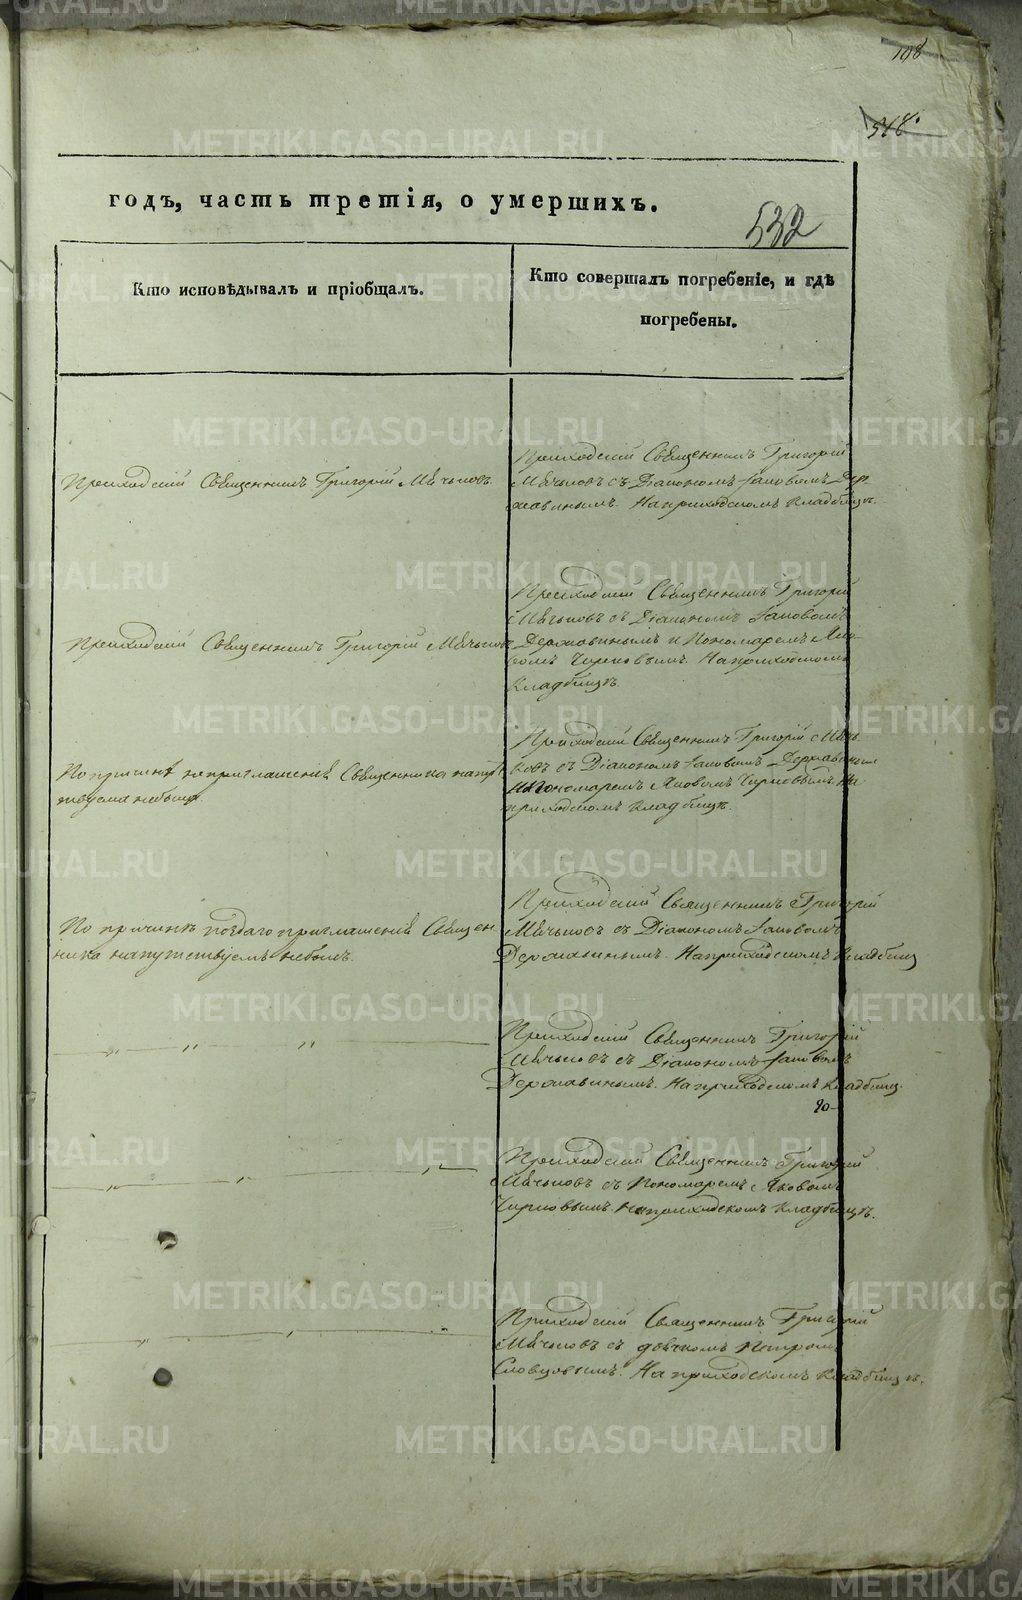 198
518.
годъ, часть третія, о умершихъ.
532
Кто исповѣдывалъ и пріобщалъ.
Кто совершалъ погребеніе, и гдѣ
погребены.
Приходскій Священникъ Григорій Мячьковъ
Приходскій Священникъ Григорій
Мячьковъ съ Діакономъ Іаковомъ Дер
жавинымъ. На приходскомъ кладбищѣ.
Приходскій Священникъ Григорій Мячьковъ
Приходскій Священникъ Григорій
Мячьковъ съ Діакономъ Іаковомъ
Державинымъ и Пономаремъ Яко
вомъ Чирковымъ. На приходскомъ
кладбищѣ.
По причинѣ неприглашенія Священника напут
ствуема небыла.
Приходскій Священникъ Григорій Мячь
ковъ съ Діакономъ Іаковомъ Державинымъ
и Пономаремъ Яковомъ Чирковымъ. На
приходскомъ кладбищѣ.
По причинѣ поздаго приглашенія Священ
ника напутствуемъ небылъ.
Приходскій Священникъ Григорій
Мячьковъ съ Діакономъ Іаковомъ
Державинымъ. На приходскомъ кладбищѣ
— „ — „ — „ —
Приходскій Священникъ Григорій
Мячьковъ съ Діакономъ Іаковомъ
Державинымъ. На приходскомъ кладбищ.
— „ — „ — „ —
Приходскій Священникъ Григорій
Мячьковъ съ Пономаремъ Яковомъ
Чирковымъ. На приходскомъ кладбищѣ.
— „ — „ — „ —
Приходскій Священникъ Григорій
Мячьковъ съ дьячкомъ Петромъ
Словцовымъ. На приходскомъ кладбищѣ.
METRIKI.GASO-URAL.RU